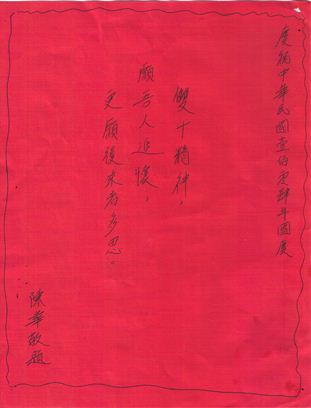 慶祝中華民國壹佰零肆年國慶
雙十精神，
願吾人追懷，
更願後來者多思。
陳華敬題